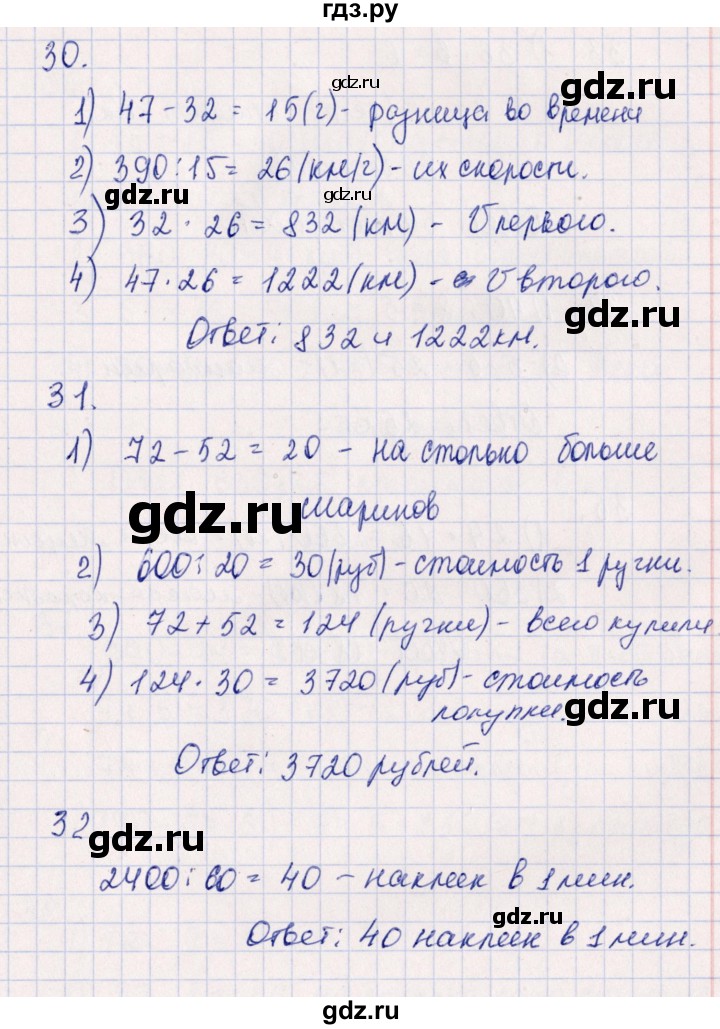 гдз.ру
30.
1) 47 - 32 = 15 (г) - разница во времени
2) 390 : 15 = 26 (км/г) - их скорости.
3) 32 · 26 = 832 (км) - V первого.
4) 47 · 26 = 1222 (км) - V второго.
Ответ: 832 и 1222 км.
31.
1) 72 - 52 = 20 - на столько больше
шариков
2) 600 : 20 = 30 (руб) - стоимость 1 ручки.
3) 72 + 52 = 124 (ручки) - всего купили
4) 124 · 30 = 3720 (руб) - стоимость
покупки.
Ответ: 3720 рублей.
32
2400 : 60 = 40 - наклеек в 1 мин.
Ответ: 40 наклеек в 1 мин.
gdz.ru
gdz.ru
gdz.ru
gdz.ru
gdz.ru
gdz.ru
gdz.ru
gdz.ru
gdz.ru
gdz.ru
gdz.ru